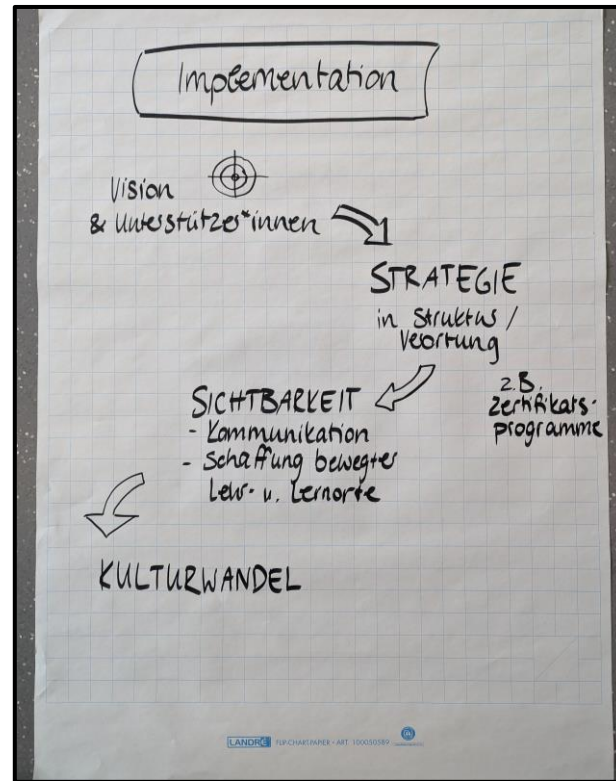 Implementation
Vision
& Unterstützer*innen
STRATEGIE
in Struktur /
Verortung
z.B.
Zertifikats-
programme
SICHTBARKEIT
- Kommunikation
- Schaffung bewegter
Lehr- u. Lernorte
KULTURWANDEL
LANDRÉ FLIPCHARTPAPIER - ART. 100050589